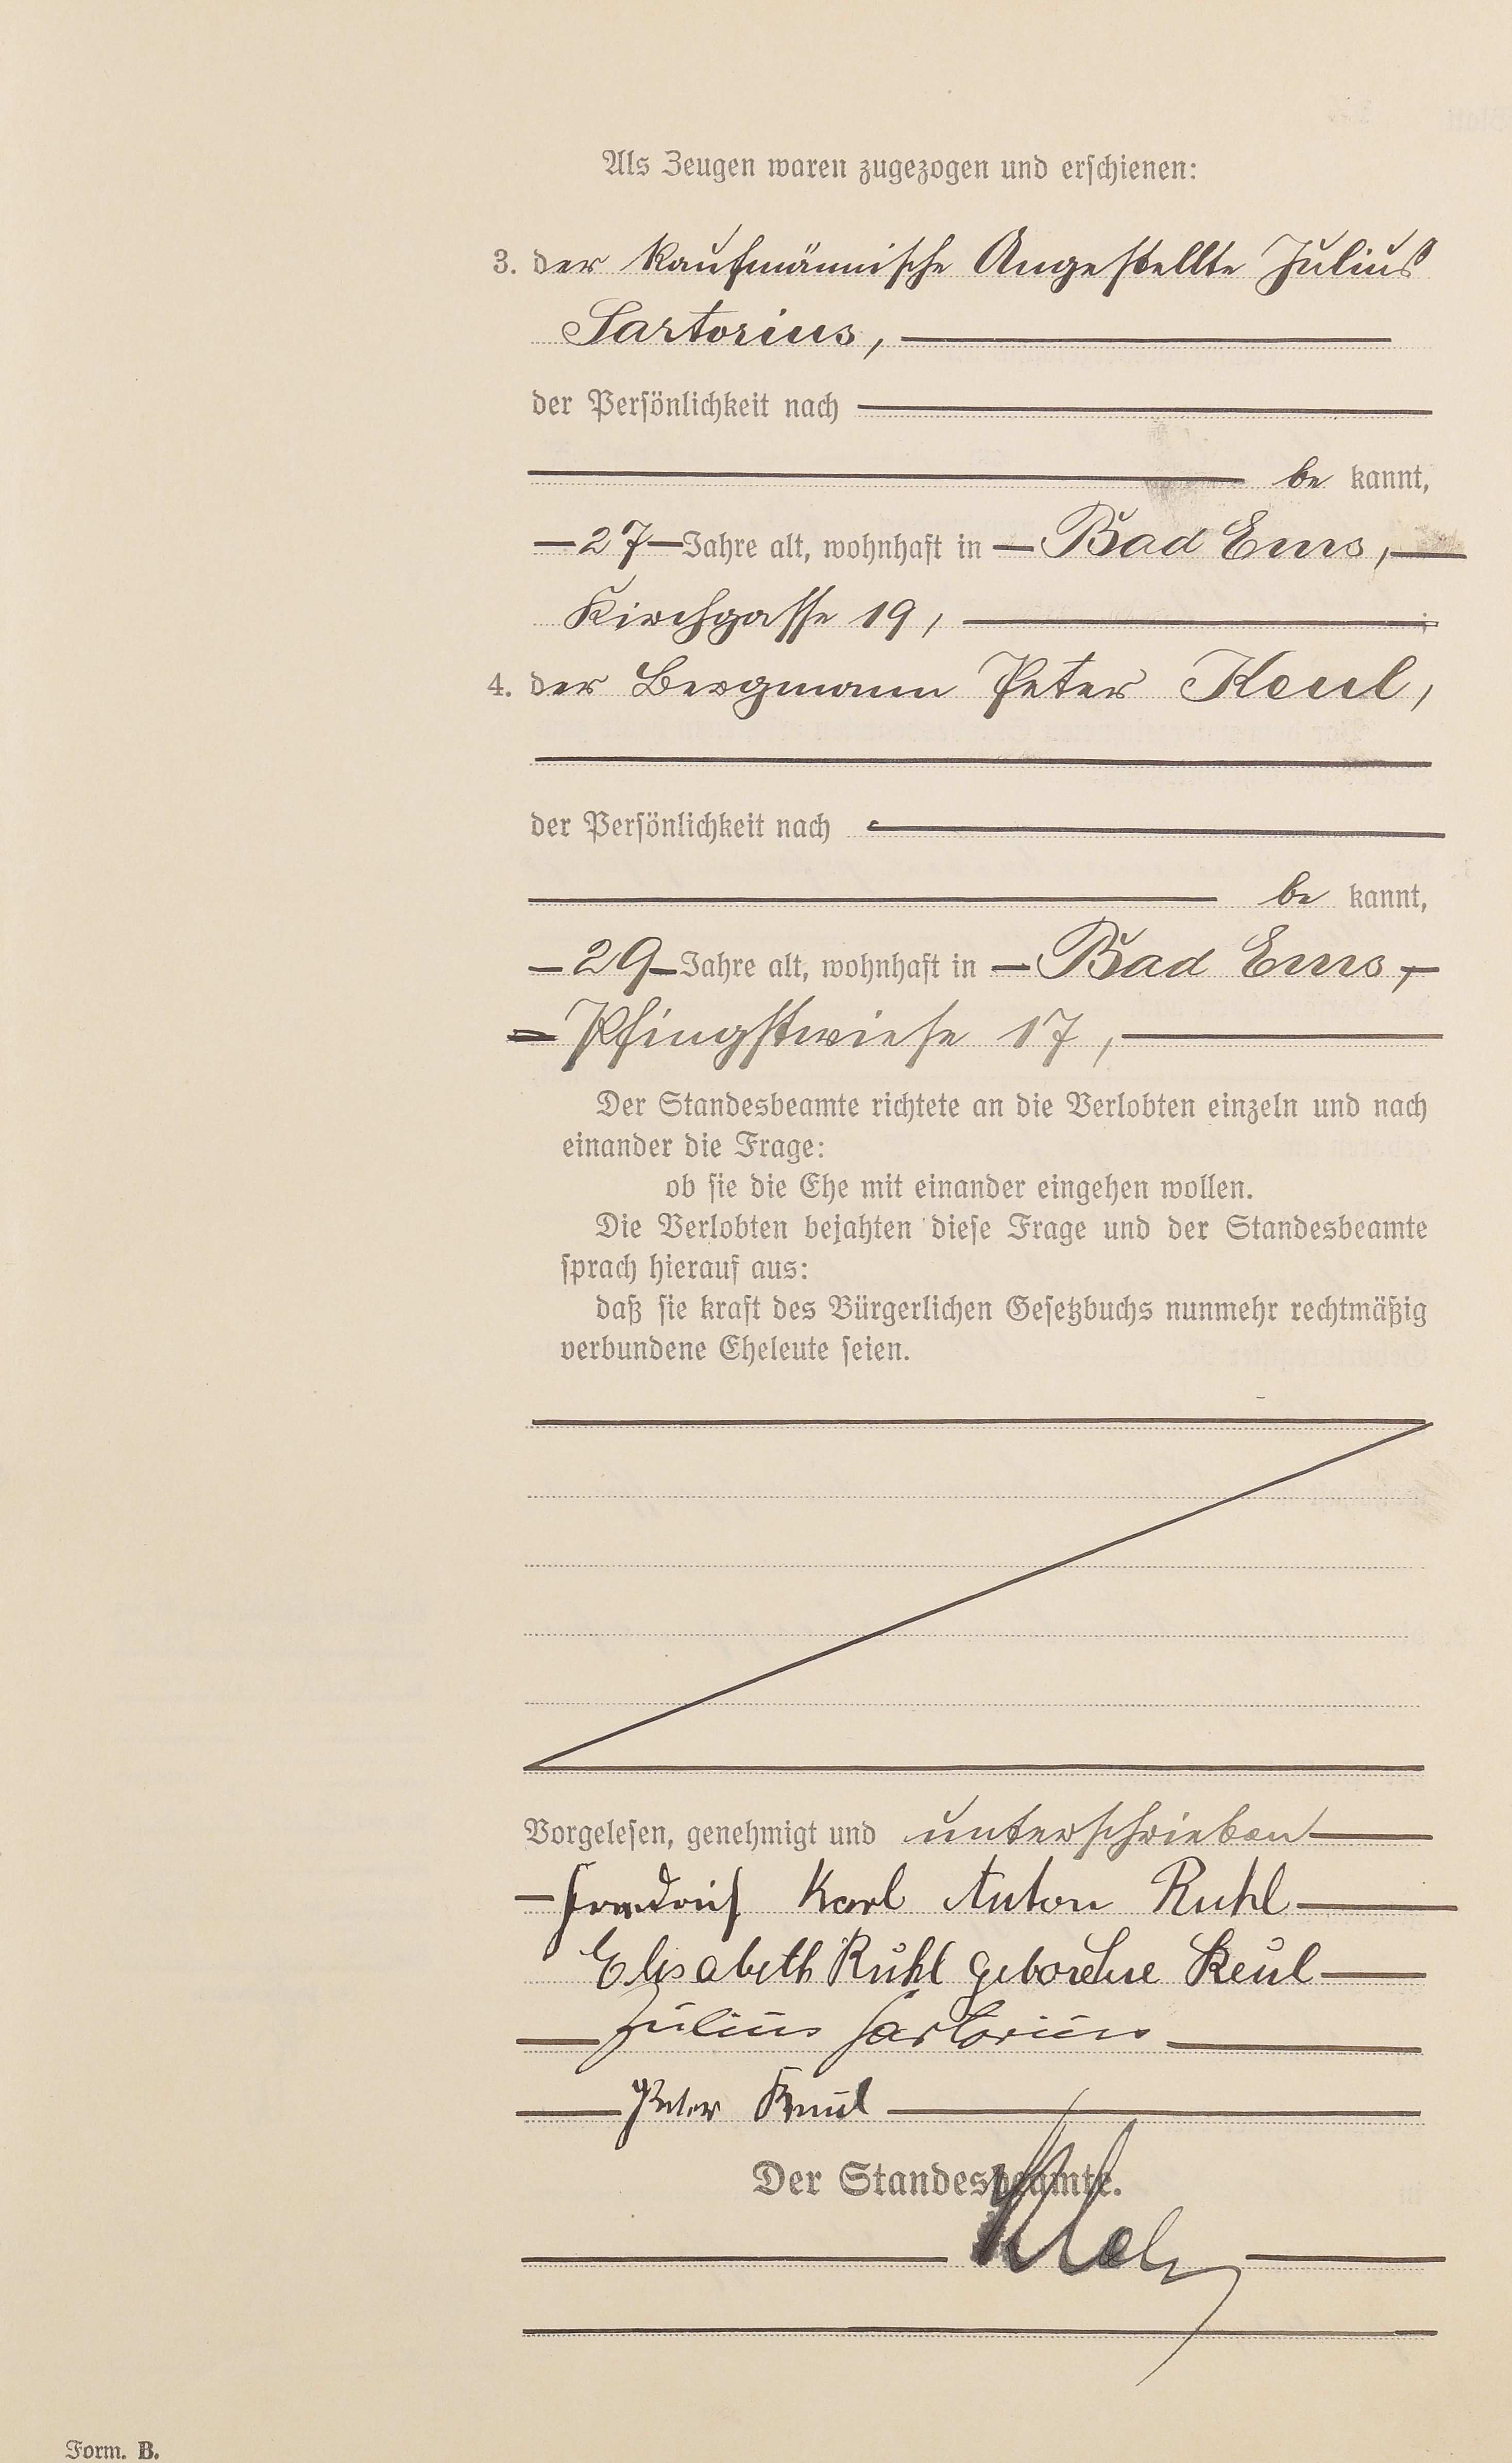 Als Zeugen waren zugezogen und erschienen:
3. der kaufmännische Angestellte Julius
Sartorius,
der Persönlichkeit nach
be kannt,
27 Jahre alt, wohnhaft in Bad Ems,
Kirchgasse 19,
4. der Bergmann Peter Keul,
der Persönlichkeit nach
be kannt,
29 Jahre alt, wohnhaft in Bad Ems,
Pfingstwiese 17,
Der Standesbeamte richtete an die Verlobten einzeln und nach
einander die Frage:
ob sie die Ehe mit einander eingehen wollen.
Die Verlobten bejahten diese Frage und der Standesbeamte
sprach hierauf aus:
daß sie kraft des Bürgerlichen Gesetzbuchs nunmehr rechtmäßig
verbundene Eheleute seien.
Vorgelesen, genehmigt und unterschrieben
Friedrich Karl Anton Ruhl
Elisabeth Ruhl geborene Keul
Julius Sartorius
Peter Keul
Der Standesbeamte.
Form. B.